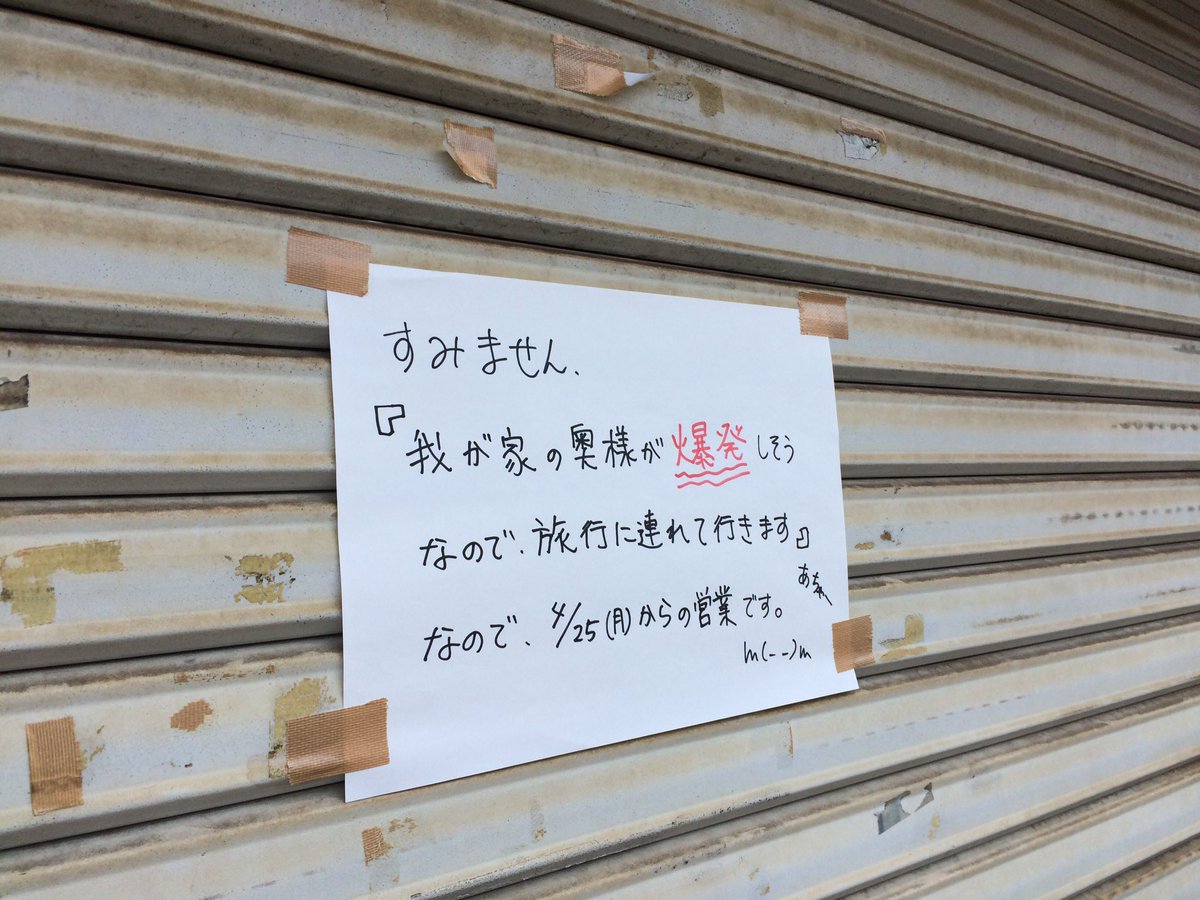 すみません、
『我が家の奥様が爆発しそう
なので、旅行に連れて行きます』
なので、4/25(月)からの営業です。
m(--)m